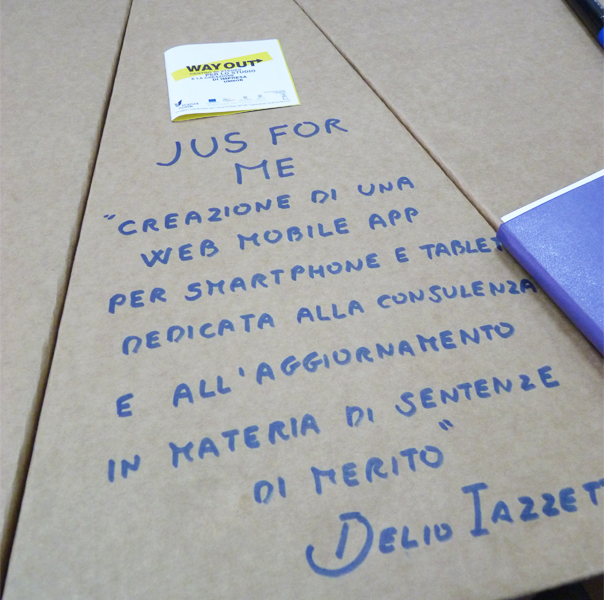 WAY OUT
PER LO STUDIO
DI IMPRESA
JUS FOR
ME
"CREAZIONE DI UNA
WEB MOBILE APP
PER SMARTPHONE E TABLET
DEDICATA ALLA CONSULENZA
E ALL'AGGIORNAMENTO
IN MATERIA DI SENTENZE
DI MERITO"
DELIO IAZZET